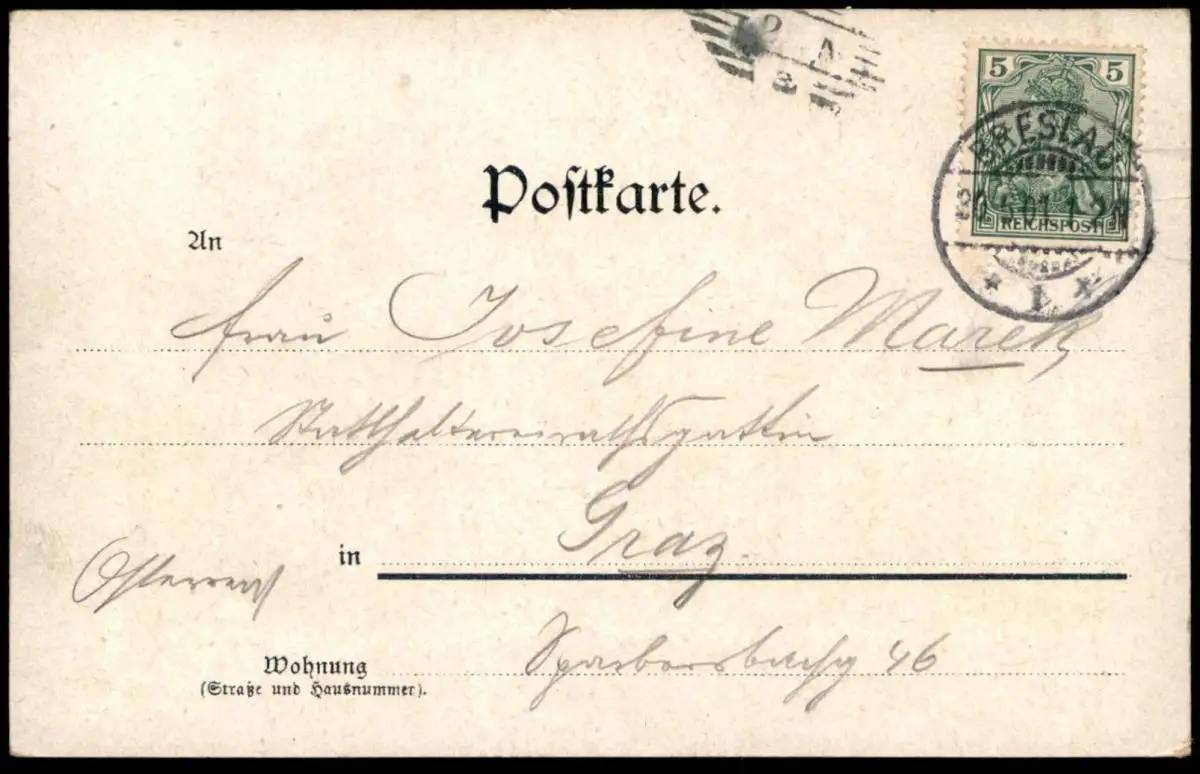 5 5
BRESLAU
1
REICHSPOST
Poſtkarte.
An
Frau Josefine Marek
Statthaltereirathsgattin
in Graz
Österreich
Wohnung
(Straße und Hausnummer).
Sparbersbachg 46